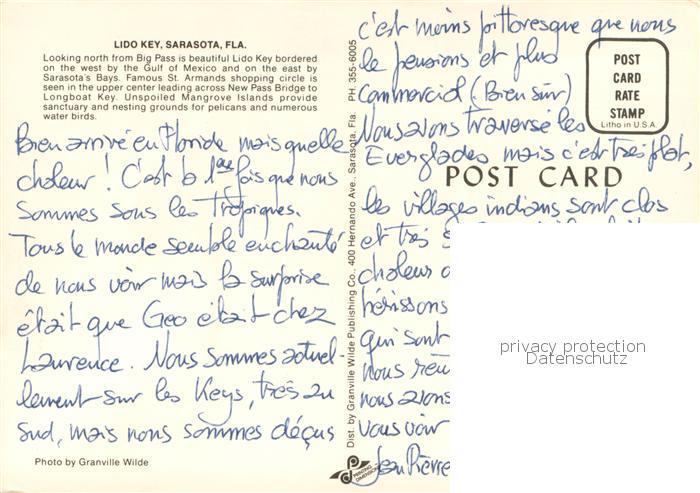 LIDO KEY, SARASOTA, FLA.
Looking north from Big Pass is beautiful Lido Key bordered
on the west by the Gulf of Mexico and on the east by
Sarasota's Bays. Famous St. Armands shopping circle is
seen in the upper center leading across New Pass Bridge to
Longboat Key. Unspoiled Mangrove Islands provide
sanctuary and nesting grounds for pelicans and numerous
water birds.
Bien arrivé en Floride mais quelle
chaleur ! C'est la 1ère fois que nous
sommes sous les Tropiques.
Tous le monde semble enchanté
de nous voir mais la surprise
était que Geo était chez
Laurence. Nous sommes actuel-
lement sur les Keys, très au
sud, mais nous sommes déçus
Photo by Granville Wilde
Dist. by Granville Wilde Publishing Co., 400 Hernando Ave., Sarasota, Fla. PH. 355-6005
c'est moins pittoresque que nous
le pensions et plus
commercial (Bien sûr)
Nous avons traversé les
Everglades mais c'est très plat,
les villages indians sont clos
et très
chaleur
hérissons
qui sont
nous
nous avons
vous voir
Jean Pierre
POST
CARD
RATE
STAMP
Litho in U.S.A.
POST CARD
privacy protection
Datenschutz